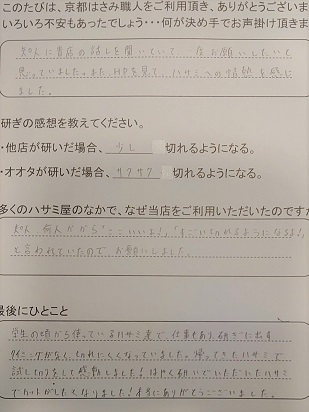 このたびは、京都はさみ職人をご利用頂き、ありがとうございま
いろいろ不安もあったでしょう・・・何が決め手でお声掛け頂きま
知人に貴店の話しを聞いていて、一度お願いしたいと
思っていました。また、HPを見て、ハサミへの情熱を感じ
ました。
研ぎの感想を教えてください。
・他店が研いだ場合、少し 切れるようになる。
・オオタが研いだ場合、サクサク 切れるようになる。
多くのハサミ屋のなかで、なぜ当店をご利用いただいたのですか
知人、何人かから「ここいいよ!」「すごい切れるようになるよ!」
と言われていたので、お願いしました。
最後にひとこと
学生の頃から使っているハサミ達で、仕事もあり、研ぎに出す
タイミングがなく、切れにくくなっていました。帰ってきたハサミで
試し切りをして感動しました!はやく研いでいただいたハサミ
でカットがしたくなりました!本当にありがとうございました。